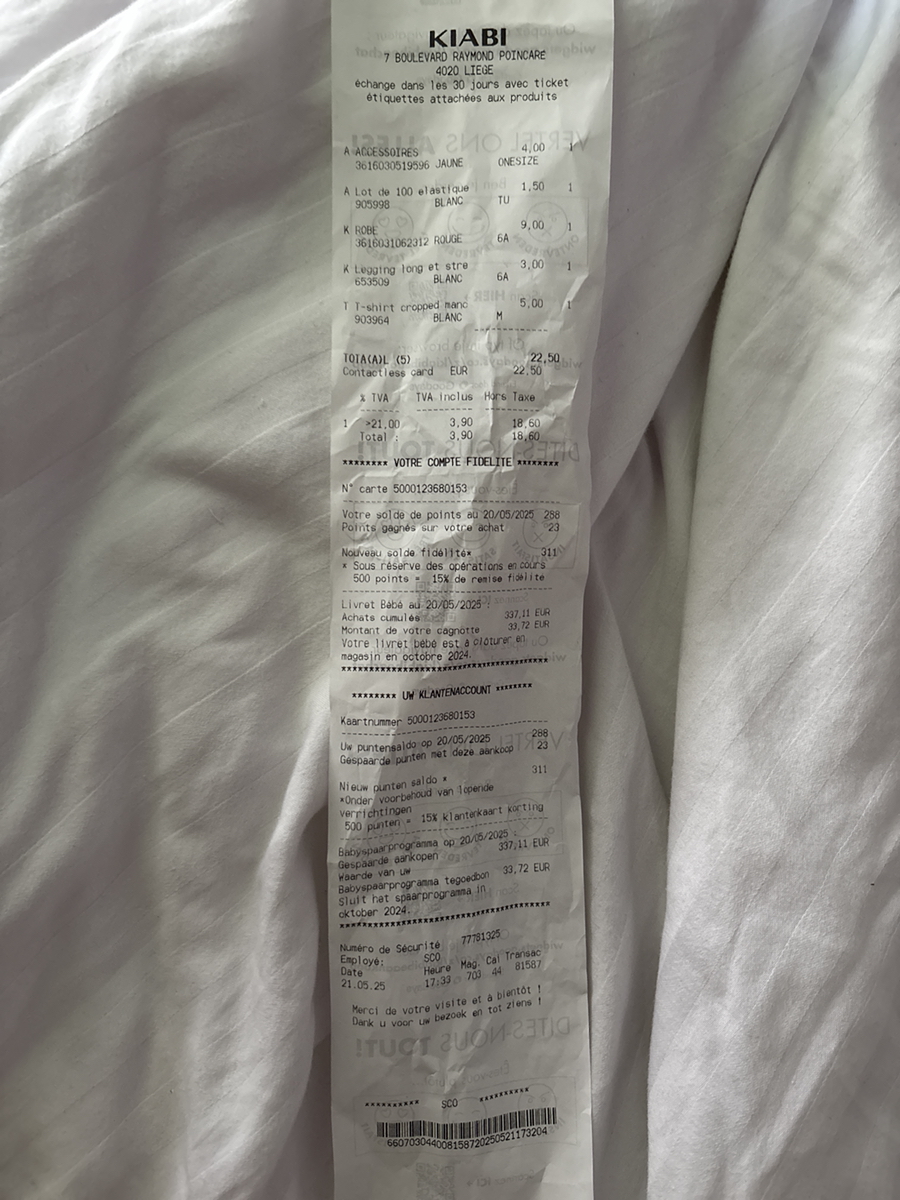 KIABI
7 BOULEVARD RAYMOND POINCARE
4020 LIEGE
échange dans les 30 jours avec ticket
étiquettes attachées aux produits
A ACCESSOIRES 4,00 1
3616030519596 JAUNE ONESIZE
A Lot de 100 elastique 1,50 1
905998 BLANC TU
K ROBE 9,00 1
3616031062312 ROUGE 6A
K Legging long et stre 3,00 1
653509 BLANC 6A
T T-shirt cropped manc 5,00 1
903964 BLANC M
------------
TOTA(A)L (5) 22,50
Contactless card EUR 22,50
% TVA TVA inclus Hors Taxe
1 >21,00 3,90 18,60
Total : 3,90 18,60
******** VOTRE COMPTE FIDELITE ********
N° carte 5000123680153
Votre solde de points au 20/05/2025 288
Points gagnés sur votre achat 23
Nouveau solde fidélité* 311
* Sous réserve des opérations en cours
500 points = 15% de remise fidélité
Livret Bébé au 20/05/2025 :
Achats cumulés 337,11 EUR
Montant de votre cagnotte 33,72 EUR
Votre livret bébé est à clôturer en
magasin en octobre 2024.
******** UW KLANTENACCOUNT ********
Kaartnummer 5000123680153
Uw puntensaldo op 20/05/2025 288
Gespaarde punten met deze aankoop 23
Nieuw punten saldo * 311
*Onder voorbehoud van lopende
verrichtingen
500 punten = 15% klantenkaart korting
Babyspaarprogramma op 20/05/2025 :
Gespaarde aankopen 337,11 EUR
Waarde van uw
Babyspaarprogramma tegoedbon 33,72 EUR
Sluit het spaarprogramma in
oktober 2024.
Numéro de Sécurité 77781325
Employé: SCO
Date Heure Mag. Cai Transac
21.05.25 17:33 703 44 81587
Merci de votre visite et à bientôt !
Dank u voor uw bezoek en tot ziens !
********** SCO **********
660703044008158720250521173204